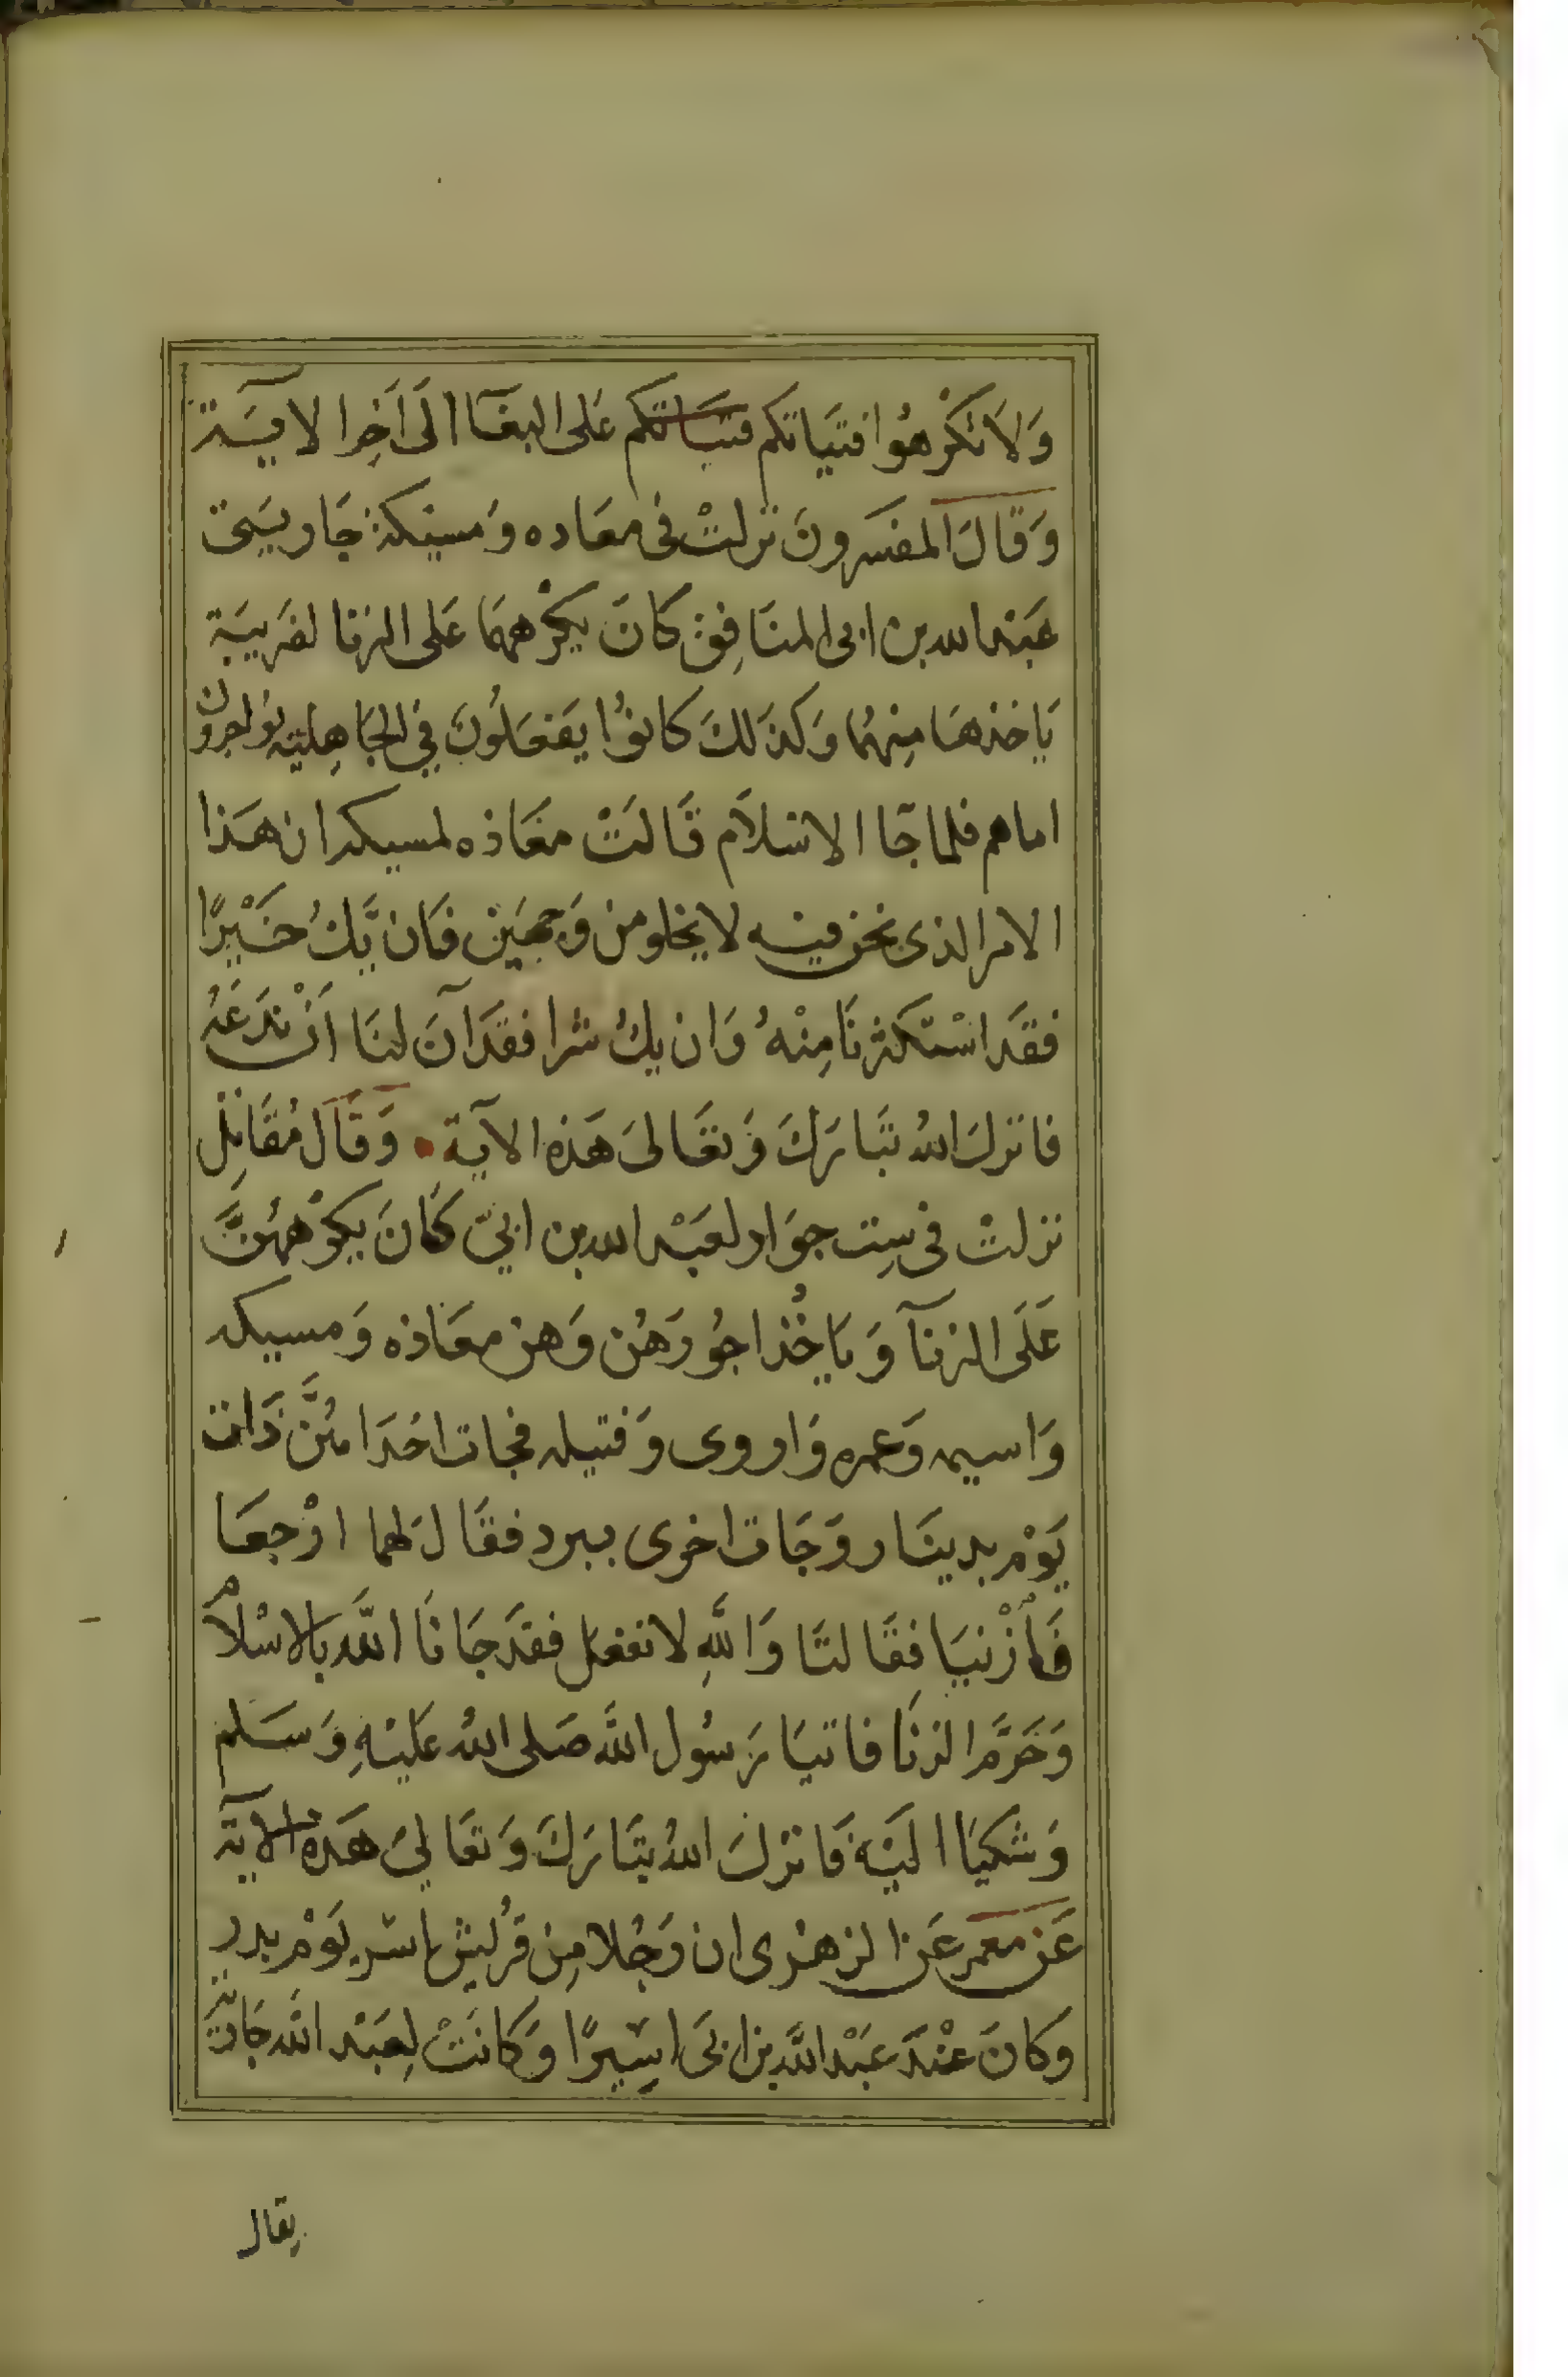 وَلَا تُكْرِهُوا فتَيَاتكم فتَيَاتكم عَلى البغَآ الَى اَخِرا لايَــة
وَقَالَ المفسّرونَ نزلتْ فى معَاده وَمسيكة جَاريتى
عَبْد الله بن ابى المنَافِق كَانَ يكْرههمَا عَلى الزنا لضَريبَة
يَاخذهَا مِنهُمَا وَكذَلكَ كانوُا يَفعَلُونَ فِي الجَاهِليّة يؤاجرون
اماهم فلما جَآ الاسْلاَم قَالتْ معَاذه لمسيكه ان هَذا
الامر الذى نحن فيْه لا يخلو من وَجهيَن فَان يَّكُ خَيْرًا
فقَد اسْتَكثرنَا مِنْهُ وَان يكُ شرا فقَد آنَ لنَا اَنْ نَدَعَهُ
فانزلَ اللهُ تبَارَكَ وَتعَالىَ هَذه الآية وَقَالَ مُقَاتِل
نزلتْ فى سِت جوَار لعَبْد الله بن ابىّ كَانَ يكرْههُنَّ
عَلَى الزنآ وَيَاخُذ اجُورَهُن وَهن معَاذه وَمسيكه
وَاسيمه وَعمره وَاروى وَقتيله فجات احَدَا هُنَّ ذَات
يَوْم بدينَار وَجَات اخرى ببرد فقَالَ لهما ارْجعَا
فَأزْنيَا فقَالتَا وَاللهِ لا نفعَل فقَد جَانَا اللَّه بالاسْلام
وَحَرَّم الزنَا فاتيَا رَسُول اللَّه صَلى اللهُ عَليْهِ وَسَلم
وَشكيَا اليَهْ فَانزلَ اللهُ تبَارَكَ وَتعَالىَ هَذه الآية
عَن معمر عَن الزهْرى ان رَجُلا مِن قرُيش اسر يَوْم بدر
وَكانَ عنْدَ عَبْد اللَّه بن ابىَ اسِيرًا وَكانَتْ لِعَبْد اللَّه جَارية
يقال